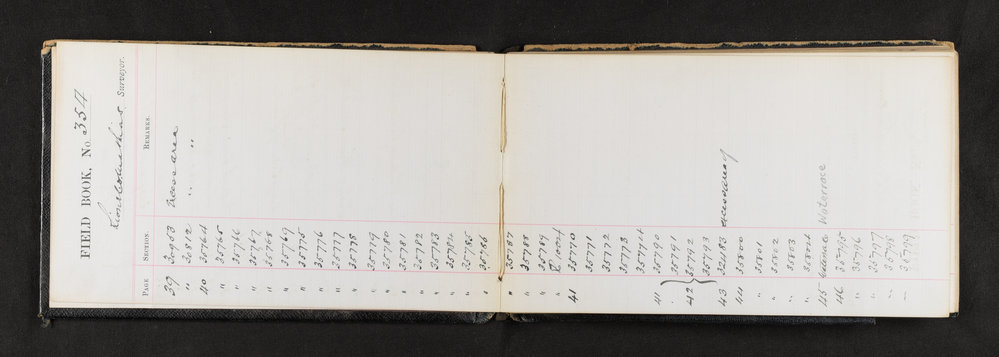 FIELD BOOK, No. 354
Surveyor.
PAGE SECTION. REMARKS.
39 access area
" 20812 " "
40 35764
" 35765
" 35766
" 35767
" 35768
" 35769
" 35775
" 35776
" 35777
" 35778
" 35779
" 35780
" 35781
" 35782
" 35783
" 35784
" 35785
" 35786
" 35787
" 35788
" 35789
"
41 35770
35771
35772
35773
35774
41 35790
" 35791
42 35792
35793
43 access area of
44 35800
" 35801
" 35802
" 35803
"
45
46 35795
" 35796
" 35797
" 35798
" 35799